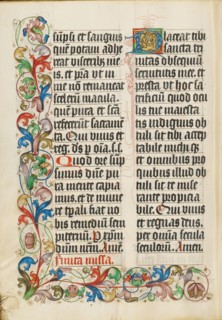 sūpsi et sanguis
quē potaui adhe
reat viscerib; me
is. et pr̄a vt in
me nō remaneat
scelerū macula.
quē pura et scā
refecerūt sacramē
ta. Qui viuis et
reg. ds p oīa. s.s.
Quod ore sūp
simus dn̄e pu
ra mente capia
mus. et de mune
re tp̄ali fiat no
bis remediū sem
piternū. P xp̄m
dnūm nr̄m. Amē.
Finita missa.
Placeat tibi
sancta tri
nitas obsequiū
seruitutis mee. et
presta vt hoc sa
crificiū quod ocu
lis tue maiesta
tis indignus ob
tuli sit tibi accep
tabile michi q3
et omnibus pro
quibus illud ob
tuli sit te mise
rante propicia
bile. Qui viuis
et regnas deus.
per om̄ia secula
seculorū. Amen.